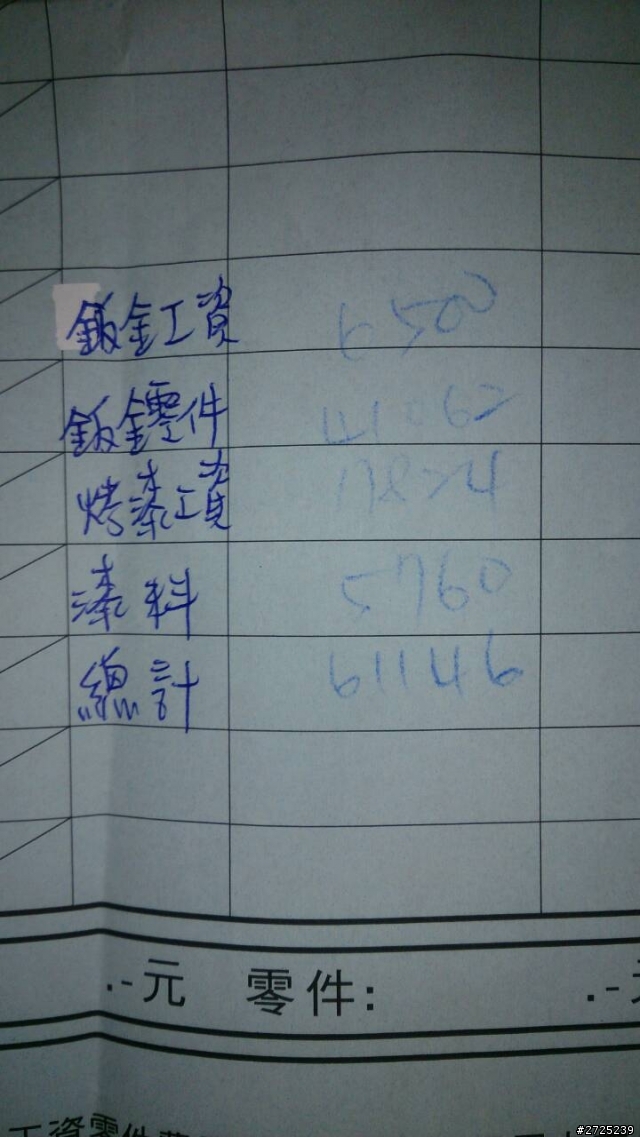 鈑金工資 6500
鈑金零件 41062
烤漆工資 7824
漆料 5760
總計 61146
.-元 零件: .-元
工資零件
#2725239